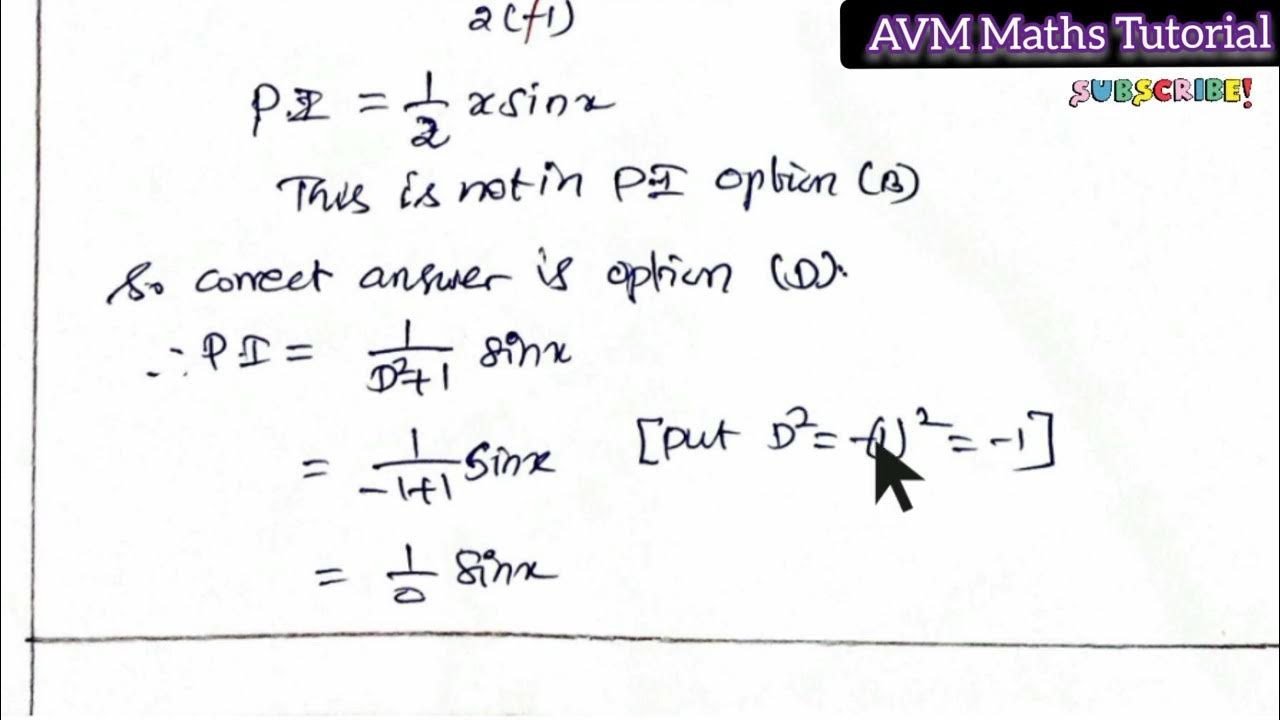 2(-1)
AVM Maths Tutorial
SUBSCRIBE!
P.I = 1/2 x sinx
This is not in P.I option (B)
So correct answer is option (D).
∴ P.I = 1/(D²+1) sinx
= 1/(-1+1) sinx [put D² = -(1)² = -1]
= 1/0 sinx